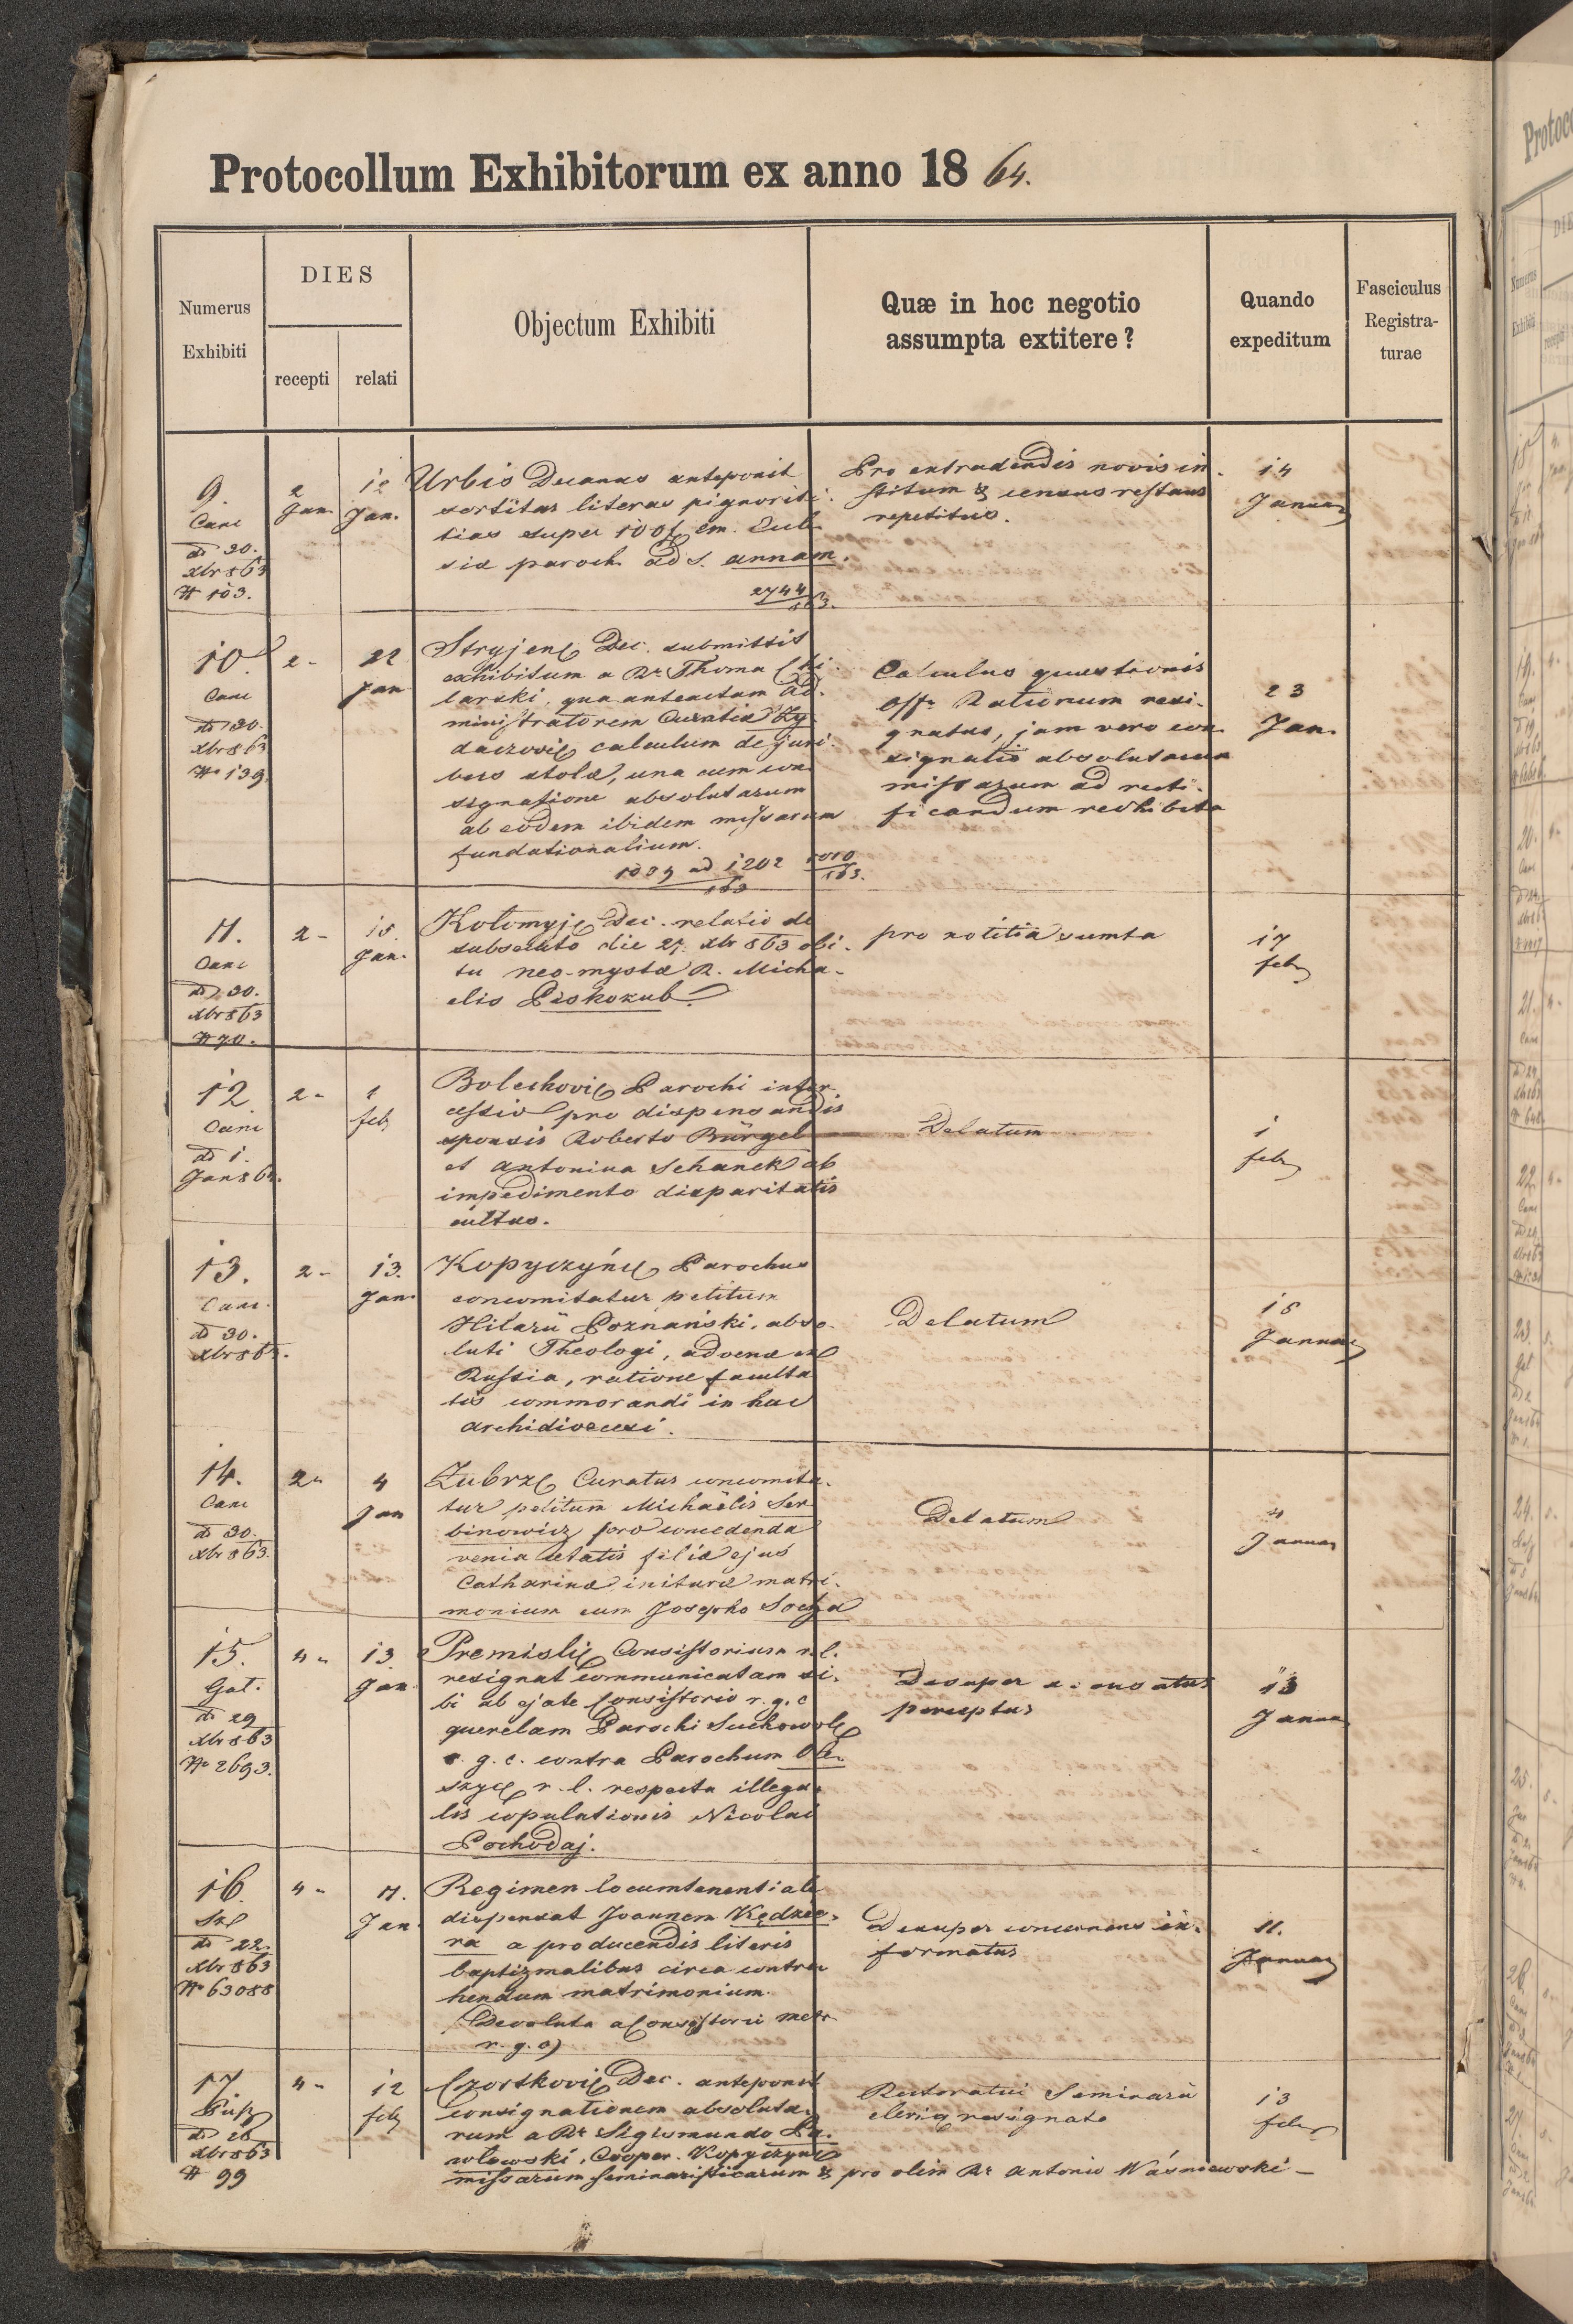 Protocollum Exhibitorum ex anno 1864.
Numerus Exhibiti
DIES
recepti
relati
Objectum Exhibiti
Quæ in hoc negotio
assumpta extitere?
Quando
expeditum
Fasciculus
Registra-
turae
9.
Canc
dd 30.
Xbr 863
N 103.
2
Jan.
12
Jan.
Urbis Decanus anteponit
sortitas literas pignoriti-
tias super 100 f cm. Eccle
siæ paroch. ad S. annam.
2744
863.
Pro extradendis novis in-
stitum & census restans
repetitus.
14
Januar
10
Canc
dd 30.
Xbr 863
N 139.
2-
22
Jan
Stryjen Dec. submittit
exhibitum a Rr Thoma
larski, qua anteactum ad-
ministratorem Curatiæ Zy
daczovie calculum de juri-
bus stolæ, una cum con
signatione absolutarum
ab eodem ibidem missarum
fundationalium.
1039 ad 1202
163
163.
Calculus quaestionis
Off. Rationum resi-
gnatus, jam vero con
signatio absolutarum
missarum ad recti-
ficandum redhibita
23
Jan.
11.
Canc
dd 30.
Xbr 863
N 70.
2-
15.
Jan.
Kołomyje Dec. relatio de
subsecuto die 27. Xbr 863 obi-
tu neo-mystæ R. Micha-
elis Piskozub.
pro notitia sumta
17
feb
12.
Canc
dd 1.
Jan 864.
2-
1
feb
Bolechovie Parochi inter
cessio pro dispensandis
sponsis Roberto Bürgel
et Antonina Schanek ab
impedimento disparitatis
cultus.
Delatum
1
feb
13.
Canc.
dd 30.
Xbr 863.
2-
13.
Jan.
Kopyczyńce Parochus
concomitatur petitum
Hilarii Poznański, abso-
luti Theologi, advenæ ex
Russia, ratione faculta
tis commorandi in hac
archidioecesi.
Delatum
15
Januar
14.
Canc
dd 30.
Xbr 863.
2-
4
Jan
Zubrze Curatus concomita-
tur petitum Michaëlis Ser
binowicz pro concedenda
venia ætatis filiæ ejus
Catharinæ initura matri-
monium cum Josepho Socha
Delatum
4
Januar
15.
Gal.
dd 29
Xbr 863
N 2693.
4-
13.
Jan
Premislie Consistorium r.l.
resignat communicatam si-
bi ab ejate Consistorio r.g.c
querelam Parochi Suchowole
r. g. c. contra Parochum Ole-
szyce r. l. respectu illega-
lis copulationis Nicolai
Pochodaj.
Desuper
perceptus
13
Januar
16.
dd 22.
Xbr 863
N 63088
4-
11.
Jan
Regimen locumtenentiale
dispensat Joannem Kędzie-
ra a producendis literis
baptizmalibus circa contra
hendum matrimonium.
(Devoluta a Consistorii metr
r. g. c)
Desuper concernens in-
formatus
11.
Januar
17.
dd 26
Xbr 863
N 99
4-
12
feb
Czortkovie Dec. anteponit
consignationem absoluta-
rum a Rr Sigismundo Pa-
włowski, Cooper. Kopyczynce
missarum seminaristicarum & pro olim Rr Antonio Waśniewski -
Rectoratui Seminarii
cleri resignata
13
feb